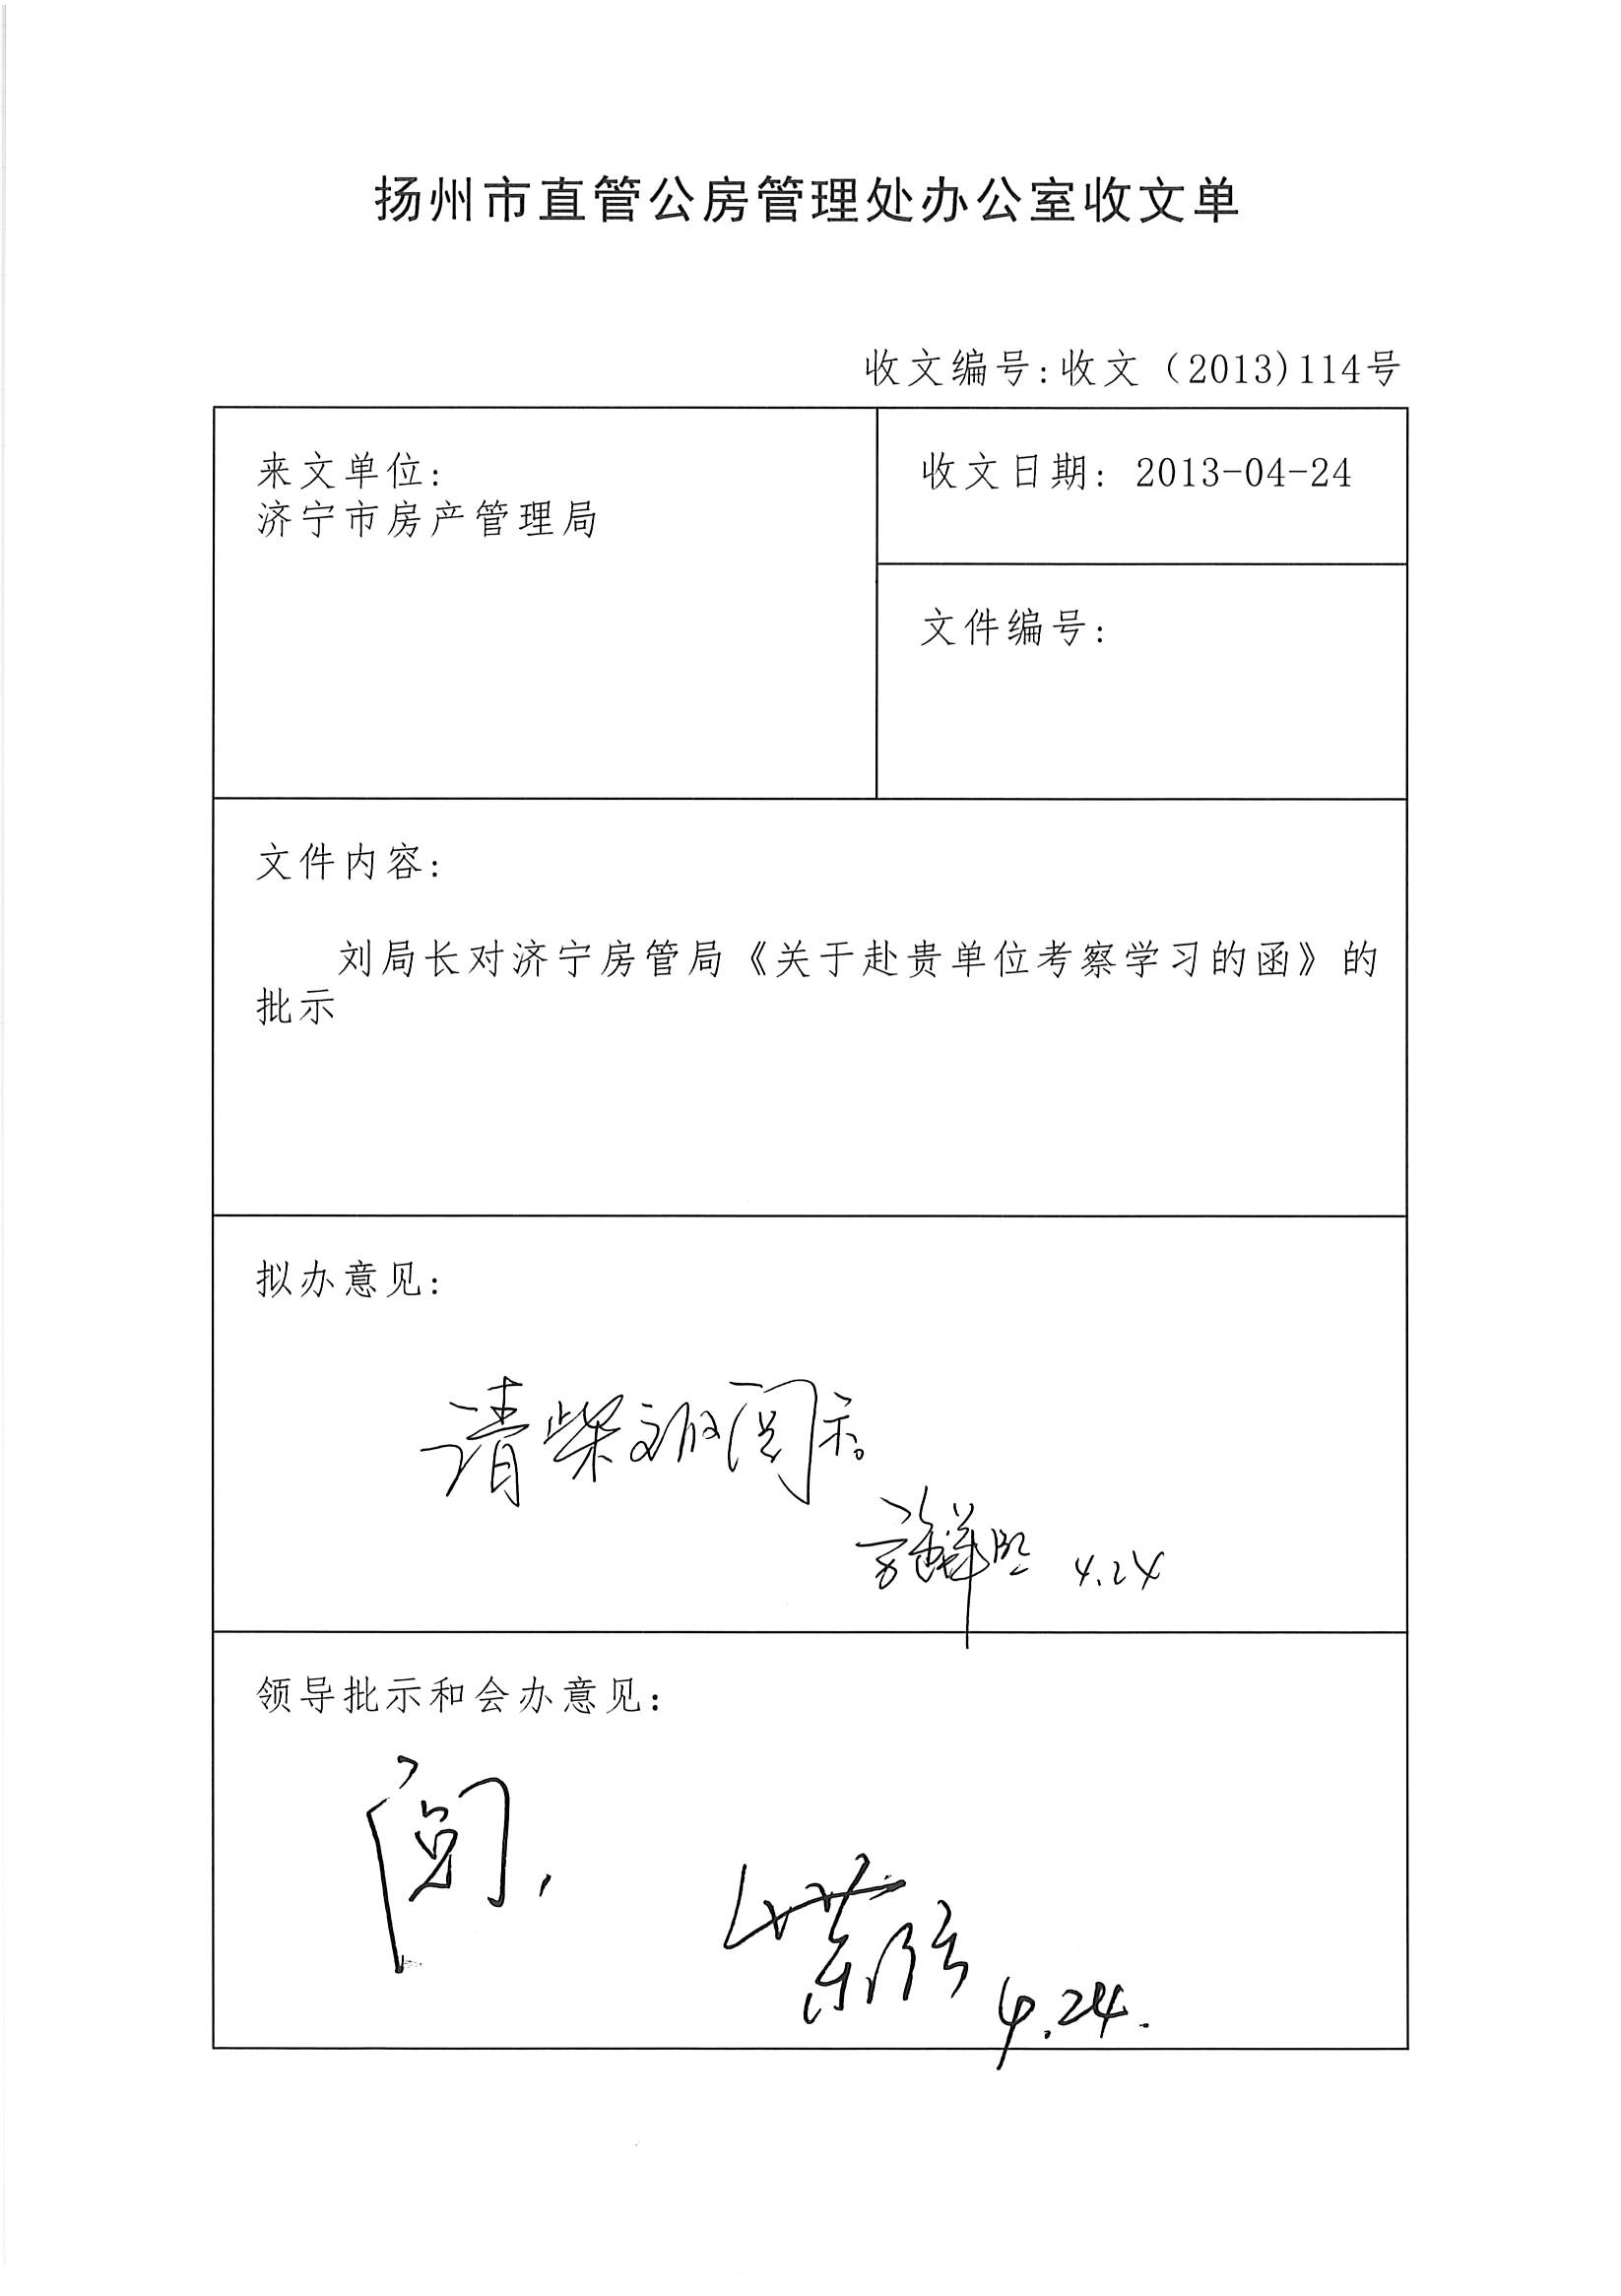 扬州市直管公房管理处办公室收文单
收文编号:收文（2013)114号
来文单位:
济宁市房产管理局
收文日期: 2013-04-24
文件编号:
文件内容:
刘局长对济宁房管局《关于赴贵单位考察学习的函》的
批示
拟办意见:
请柴 阅示。
4.24
领导批示和会办意见:
阅,
4.24.